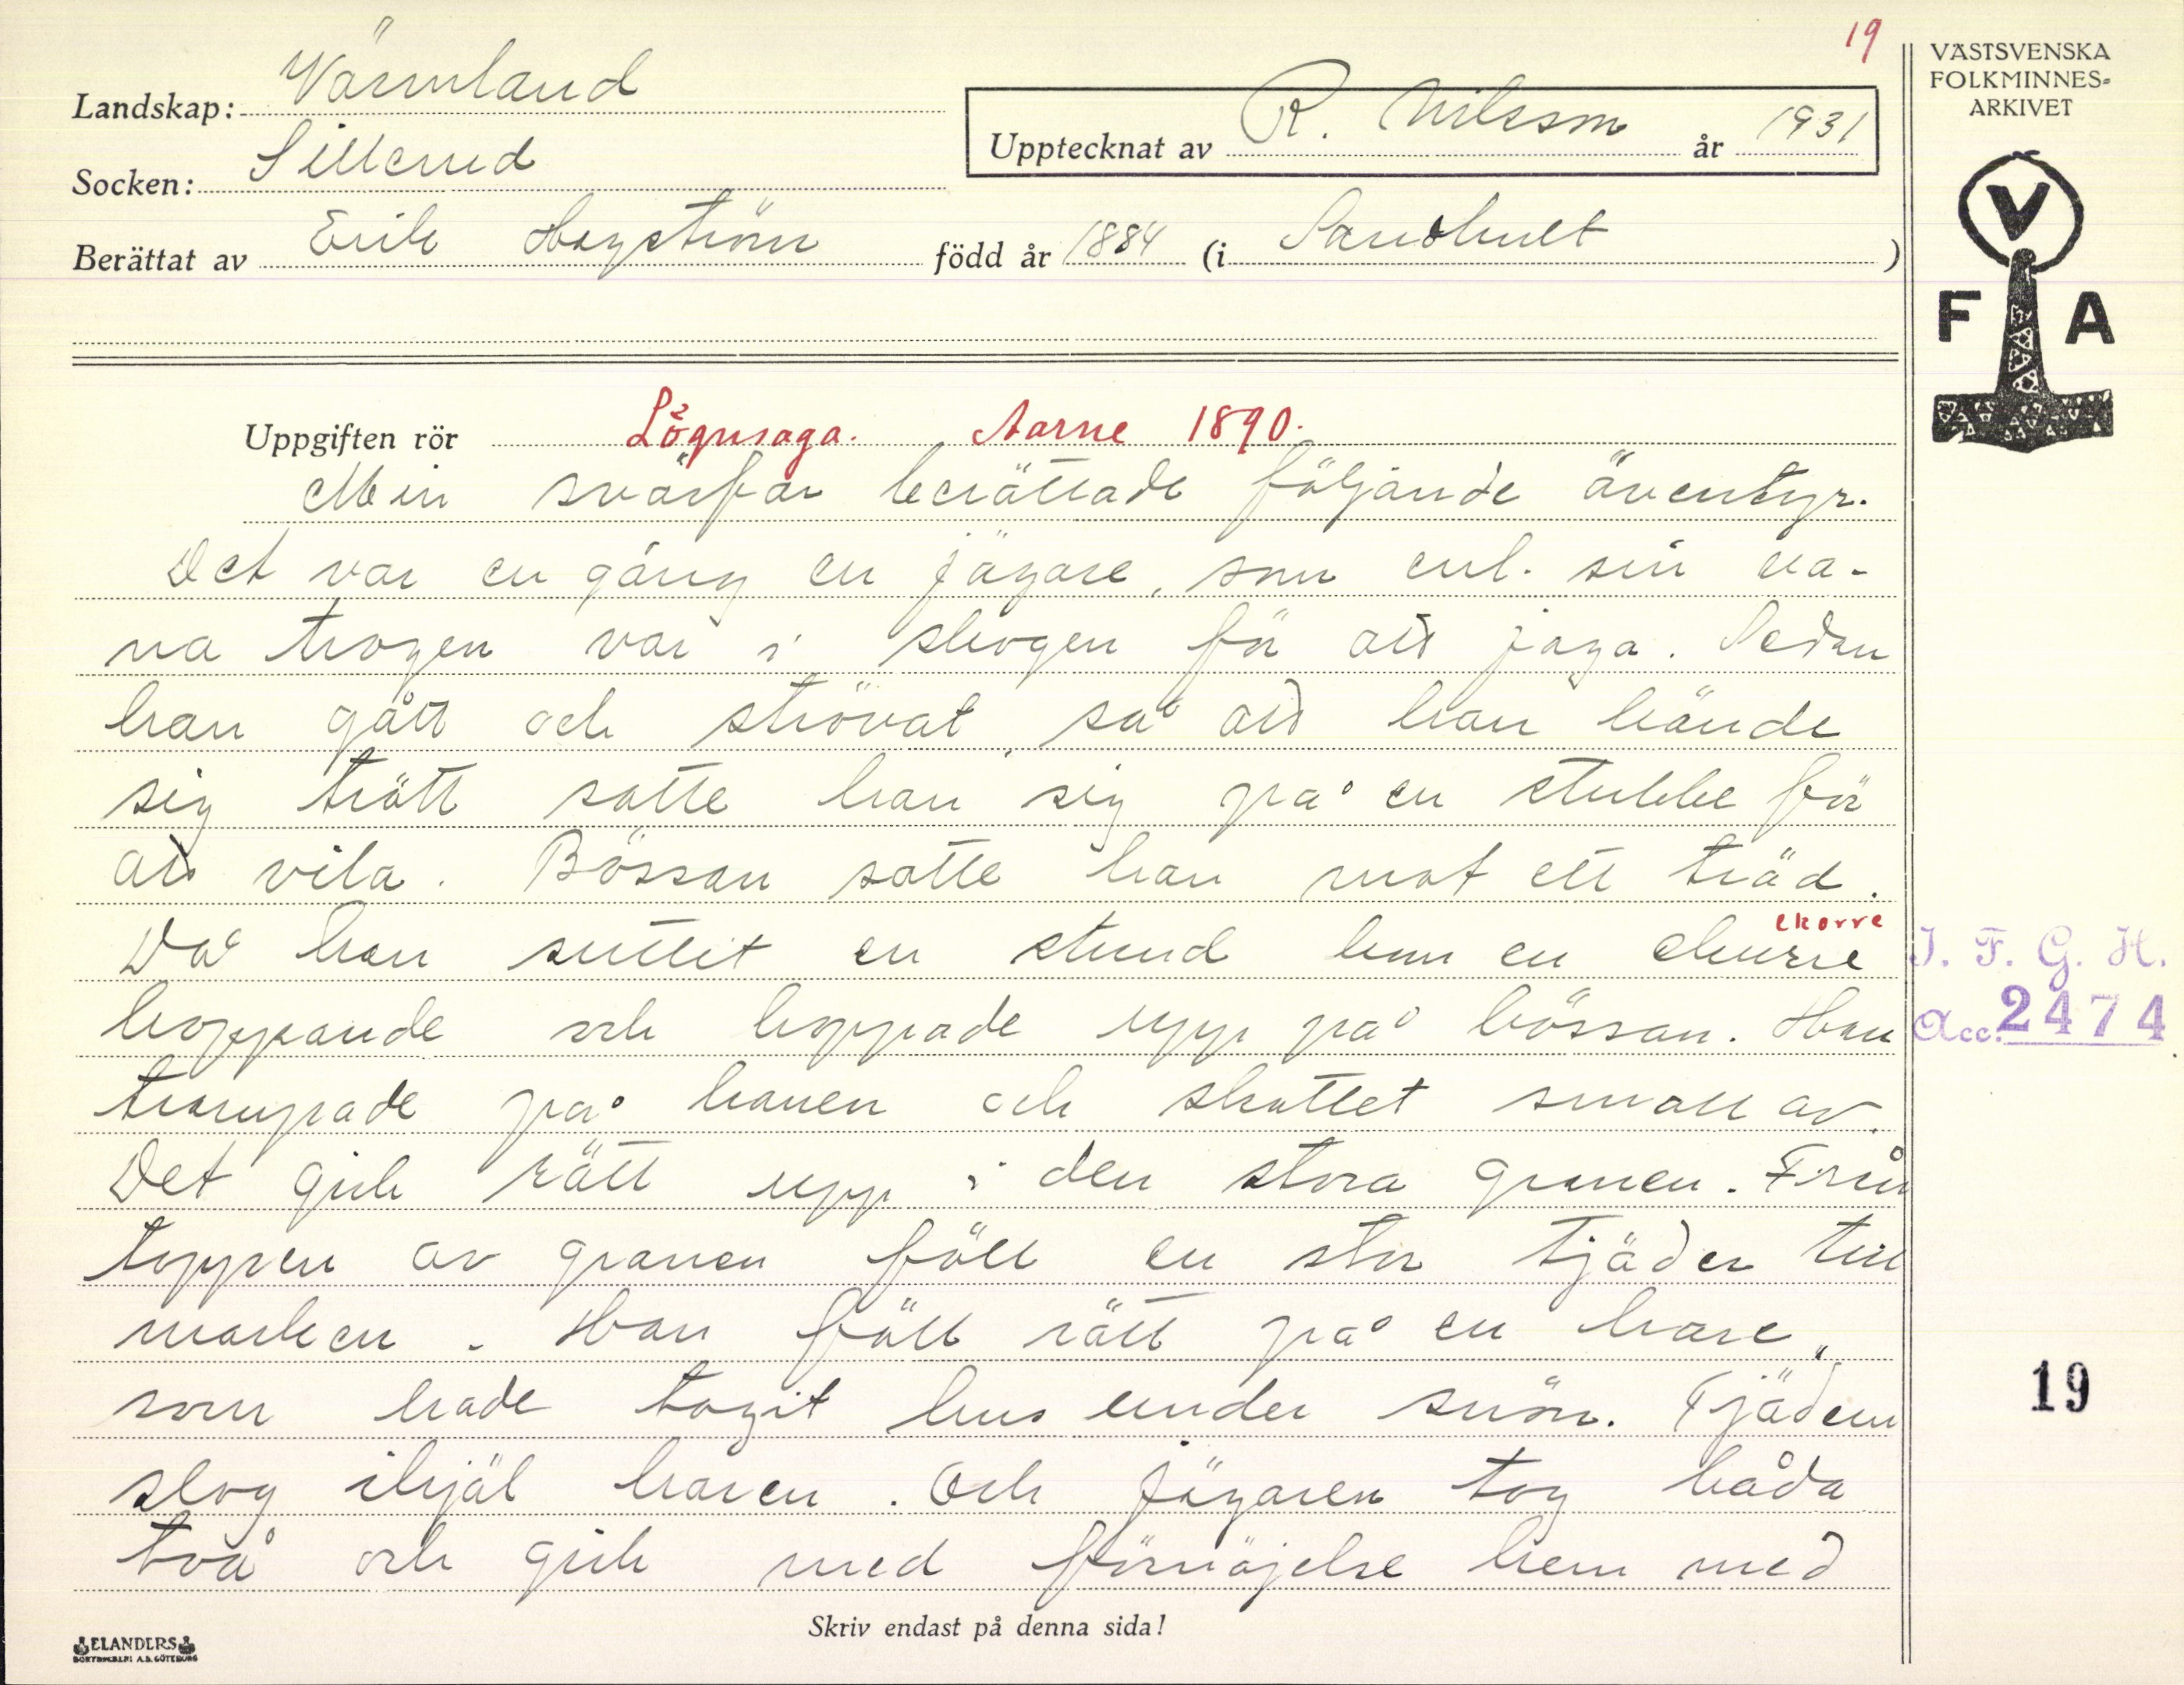 19
VÄSTSVENSKA
FOLKMINNES=
ARKIVET
Landskap: Värmland
Upptecknat av R. Nilsson år 1931
Socken: Sillerud
Berättat av Erik Hagström född år 1884 (i Sandhult )
V
F A
Uppgiften rör Lögnsaga. Aarne 1890.
Min svärfar berättade följande äventyr.
Det var en gång en jägare, som enl. sin va-
na trogen var i skogen för att jaga. Sedan
han gått och strövat, så att han kände
sig trött satte han sig på en stubbe för
att vila. Bössan satte han mot ett träd.
ekorre
Då han suttit en stund kom en ekurre
hoppande och hoppade upp på bössan. Han
trampade på hanen och skottet small av.
Det gick rätt upp i den stora granen. Från
toppen av granen föll en stor tjäder till
marken. Han föll rätt på en hare,
som hade tagit hus under snön. Tjädern
slog ihjäl haren. Och jägaren tog båda
två och gick med förnöjelse hem med
I. F. G. H.
Acc. 2474
19
Skriv endast på denna sida!
ELANDERS
BOKTRYCKERI A.B. GÖTEBORG